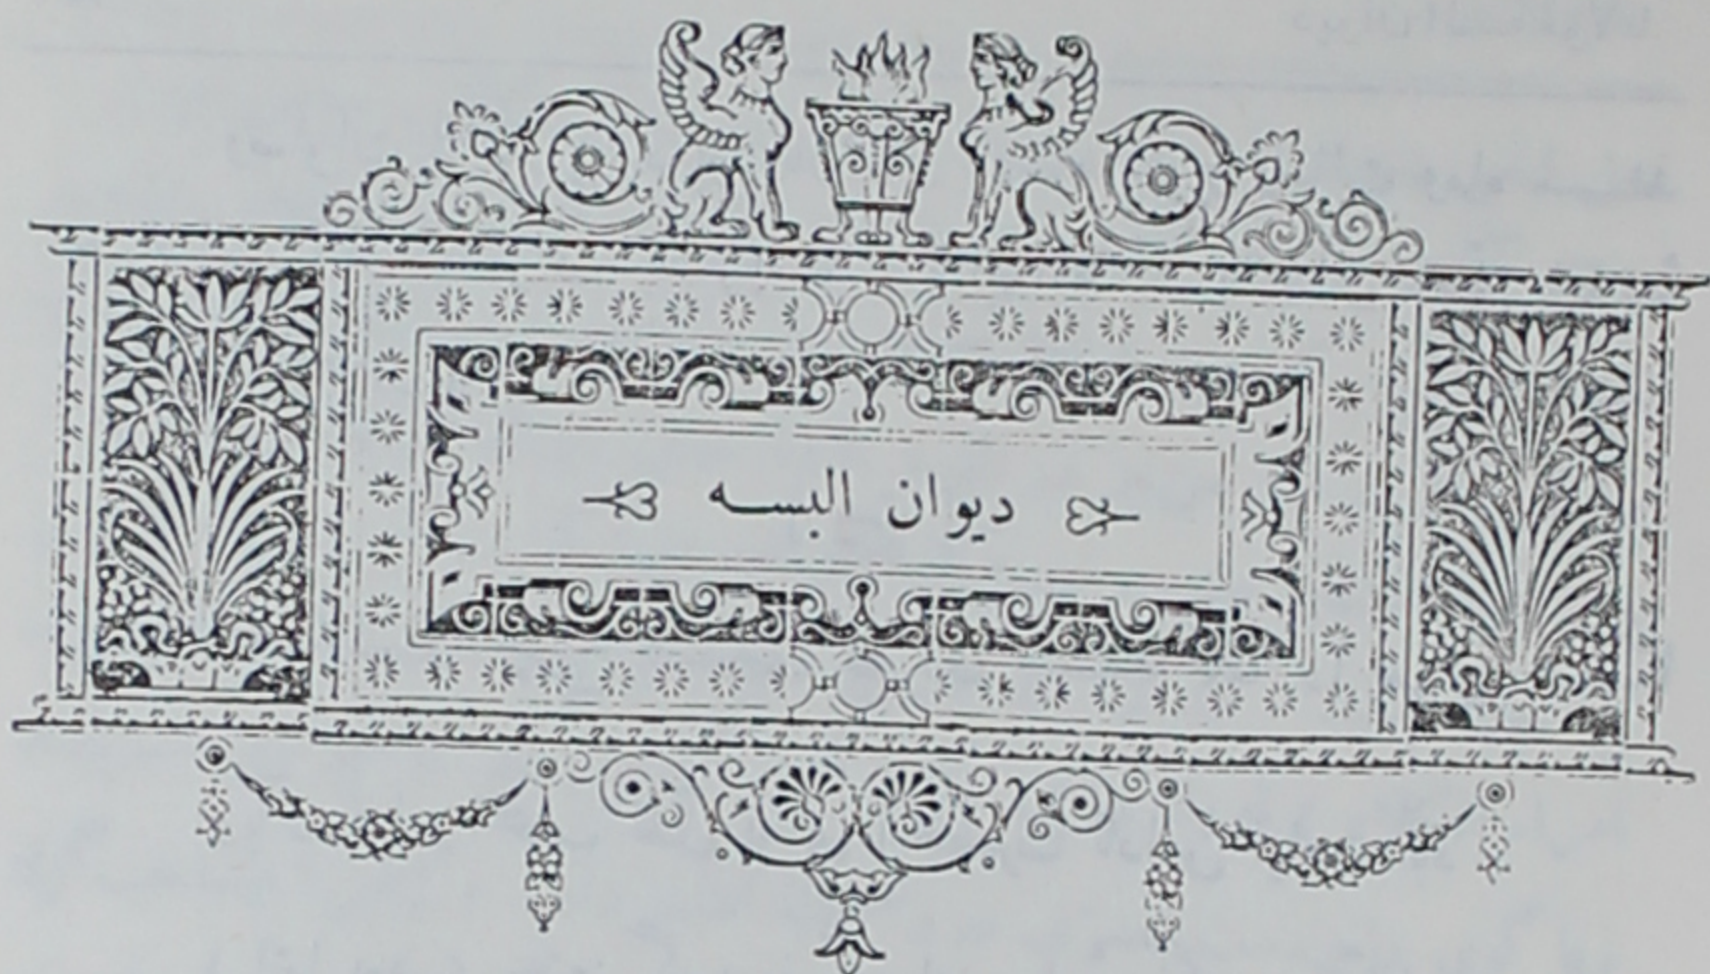 ديوان البسه